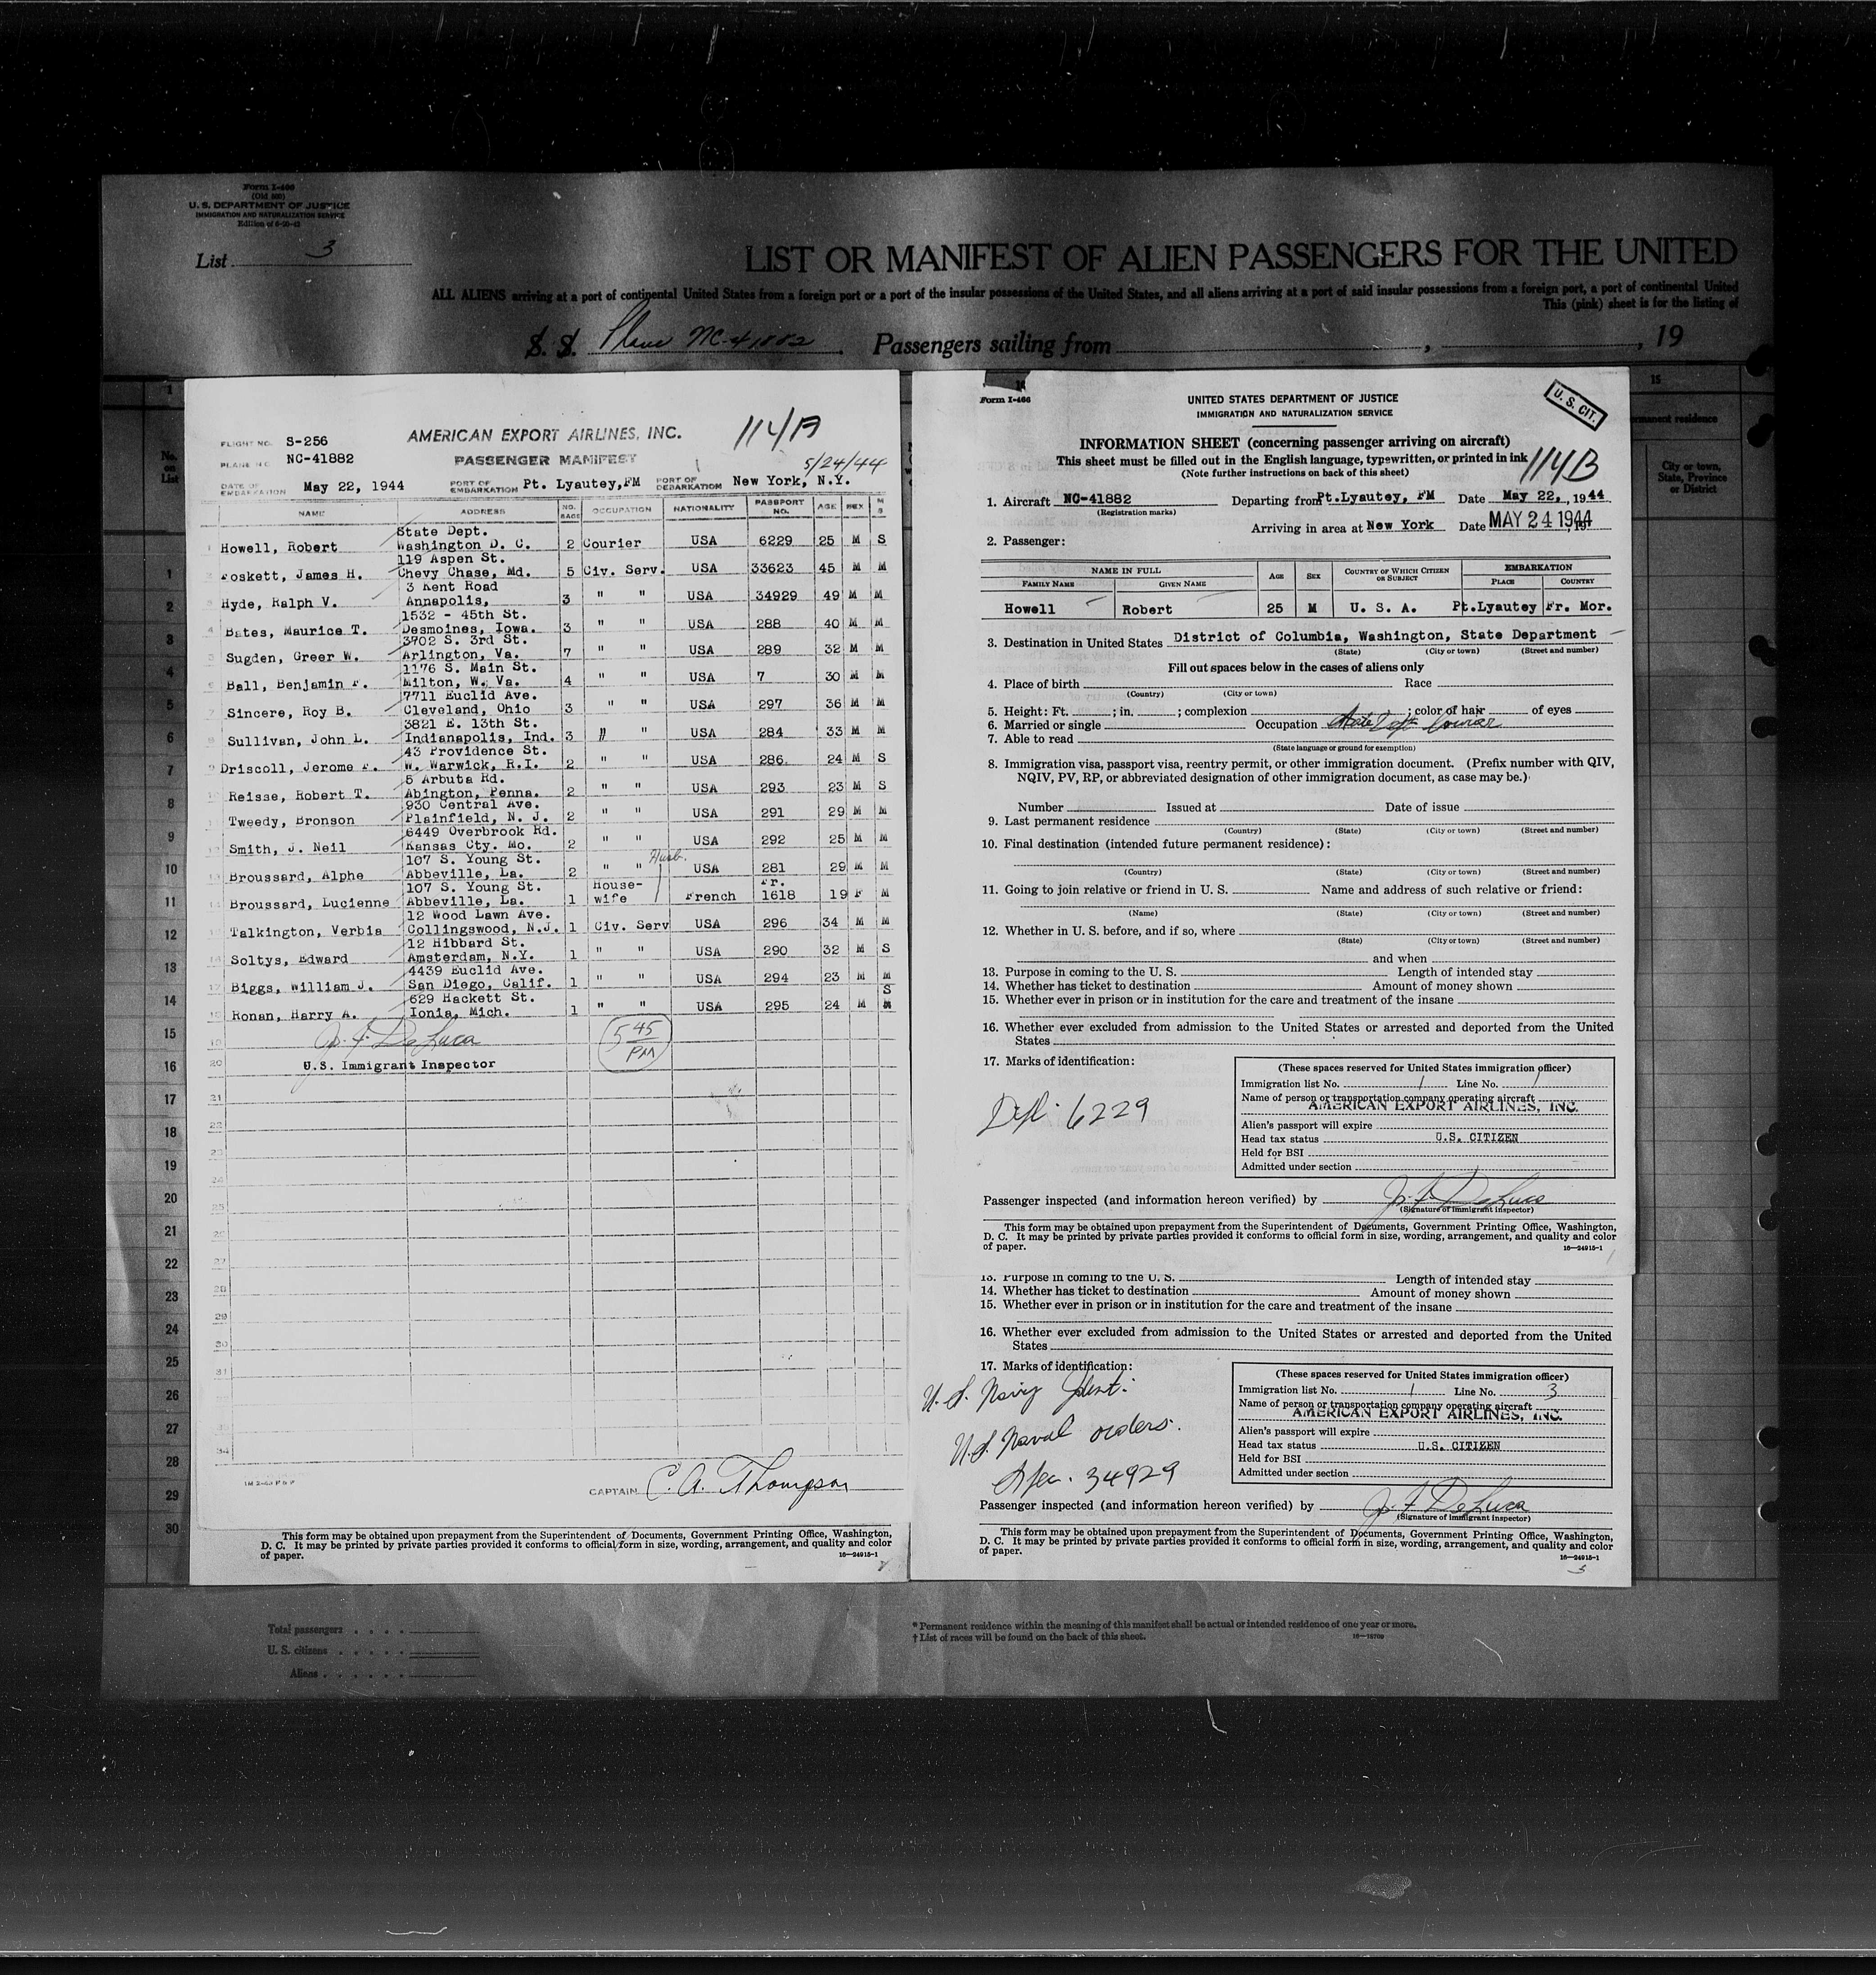 Form I-466
(Old 500)
U. S. DEPARTMENT OF JUSTICE
IMMIGRATION AND NATURALIZATION SERVICE
List 3
LIST OR MANIFEST OF ALIEN PASSENGERS FOR THE UNITED
ALL ALIENS arriving at a port of continental United States from a foreign port or a port of the insular possessions of the United States, and all aliens arriving at a port of said insular possessions from a foreign port, a port of continental United
This (pink) sheet is for the listing of
S. S. Plane NC-41882 Passengers sailing from , , 19
FLIGHT NO. S-256 AMERICAN EXPORT AIRLINES, INC. 114/A
PLANE NO. NC-41882 PASSENGER MANIFEST 5/24/44
DATE OF EMBARKATION May 22, 1944 PORT OF EMBARKATION Pt. Lyautey,FM PORT OF DEBARKATION New York, N.Y.
NAME ADDRESS NO. BAGS OCCUPATION NATIONALITY PASSPORT NO. AGE SEX M S
State Dept.
Howell, Robert Washington D. C. 2 Courier USA 6229 25 M S
119 Aspen St.
Foskett, James H. Chevy Chase, Md. 5 Civ. Serv. USA 33623 45 M M
3 Kent Road
Hyde, Ralph V. Annapolis, 3 " " USA 34929 49 M M
1532 - 45th St.
Bates, Maurice T. Desmoines, Iowa. 3 " " USA 288 40 M M
3702 S. 3rd St.
Sugden, Greer W. Arlington, Va. 7 " " USA 289 32 M M
1176 S. Main St.
Ball, Benjamin F. Milton, W. Va. 4 " " USA 7 30 M M
7711 Euclid Ave.
Sincere, Roy B. Cleveland, Ohio 3 " " USA 297 36 M M
3821 E. 13th St.
Sullivan, John L. Indianapolis, Ind. 3 " " USA 284 33 M M
43 Providence St.
Driscoll, Jerome F. W. Warwick, R.I. 2 " " USA 286 24 M S
5 Arbuta Rd.
Reisse, Robert T. Abington, Penna. 2 " " USA 293 23 M S
930 Central Ave.
Tweedy, Bronson Plainfield, N. J. 2 " " USA 291 29 M M
6449 Overbrook Rd.
Smith, J. Neil Kansas Cty. Mo. 2 " " USA 292 25 M M
107 S. Young St. Husb.
Broussard, Alphe Abbeville, La. 2 " " USA 281 29 M M
107 S. Young St. House- Fr.
Broussard, Lucienne Abbeville, La. 1 wife French 1618 19 F M
12 Wood Lawn Ave.
Talkington, Verbia Collingswood, N.J. 1 Civ. Serv USA 296 34 M M
12 Hibbard St.
Soltys, Edward Amsterdam, N.Y. 1 " " USA 290 32 M S
4439 Euclid Ave.
Biggs, William J. San Diego, Calif. 1 " " USA 294 23 M M
629 Hackett St. S
Ronan, Harry A. Ionia, Mich. 1 " " USA 295 24 M M
J. F. DeLuca 5 45 PM
U.S. Immigrant Inspector
CAPTAIN C. A. Thompson
This form may be obtained upon prepayment from the Superintendent of Documents, Government Printing Office, Washington,
D. C. It may be printed by private parties provided it conforms to official form in size, wording, arrangement, and quality and color
of paper. 16—24915-1
Total passengers
U. S. citizens
Aliens
Form I-466 UNITED STATES DEPARTMENT OF JUSTICE U. S. CIT.
IMMIGRATION AND NATURALIZATION SERVICE
INFORMATION SHEET (concerning passenger arriving on aircraft)
This sheet must be filled out in the English language, typewritten, or printed in ink 114B
(Note further instructions on back of this sheet)
1. Aircraft NC-41882 Departing from Pt.Lyautey, FM Date May 22, , 1944
(Registration marks)
Arriving in area at New York Date MAY 24 1944
2. Passenger:
NAME IN FULL AGE SEX COUNTRY OF WHICH CITIZEN OR SUBJECT EMBARKATION
FAMILY NAME GIVEN NAME PLACE COUNTRY
Howell Robert 25 M U. S. A. Pt.Lyautey Fr. Mor.
3. Destination in United States District of Columbia, Washington, State Department
(State) (City or town) (Street and number)
Fill out spaces below in the cases of aliens only
4. Place of birth Race
(Country) (City or town)
5. Height: Ft. ; in. ; complexion ; color of hair of eyes
6. Married or single Occupation State Dept Courier
7. Able to read
(State language or ground for exemption)
8. Immigration visa, passport visa, reentry permit, or other immigration document. (Prefix number with QIV,
NQIV, PV, RP, or abbreviated designation of other immigration document, as case may be.)
Number Issued at Date of issue
9. Last permanent residence
(Country) (State) (City or town) (Street and number)
10. Final destination (intended future permanent residence):
(Country) (State) (City or town) (Street and number)
11. Going to join relative or friend in U. S. Name and address of such relative or friend:
(Name) (State) (City or town) (Street and number)
12. Whether in U. S. before, and if so, where
(State) (City or town) (Street and number)
and when
13. Purpose in coming to the U. S. Length of intended stay
14. Whether has ticket to destination Amount of money shown
15. Whether ever in prison or in institution for the care and treatment of the insane
16. Whether ever excluded from admission to the United States or arrested and deported from the United
States
17. Marks of identification:
Dipl. 6229
(These spaces reserved for United States immigration officer)
Immigration list No. 1 Line No. 1
Name of person or transportation company operating aircraft
AMERICAN EXPORT AIRLINES, INC.
Alien's passport will expire
Head tax status U.S. CITIZEN
Held for BSI
Admitted under section
Passenger inspected (and information hereon verified) by J. F. DeLuca
(Signature of immigrant inspector)
This form may be obtained upon prepayment from the Superintendent of Documents, Government Printing Office, Washington,
D. C. It may be printed by private parties provided it conforms to official form in size, wording, arrangement, and quality and color
of paper. 16—24915-1
13. Purpose in coming to the U. S. Length of intended stay
14. Whether has ticket to destination Amount of money shown
15. Whether ever in prison or in institution for the care and treatment of the insane
16. Whether ever excluded from admission to the United States or arrested and deported from the United
States
17. Marks of identification:
U. S. Navy Ident.
U.S. Naval orders.
34929
(These spaces reserved for United States immigration officer)
Immigration list No. 1 Line No. 3
Name of person or transportation company operating aircraft
AMERICAN EXPORT AIRLINES, INC.
Alien's passport will expire
Head tax status U.S. CITIZEN
Held for BSI
Admitted under section
Passenger inspected (and information hereon verified) by J. F. DeLuca
(Signature of immigrant inspector)
This form may be obtained upon prepayment from the Superintendent of Documents, Government Printing Office, Washington,
D. C. It may be printed by private parties provided it conforms to official form in size, wording, arrangement, and quality and color
of paper. 16—24915-1
* Permanent residence within the meaning of this manifest shall be actual or intended residence of one year or more.
† List of races will be found on the back of this sheet.
15
permanent residence
City or town, State, Province or District